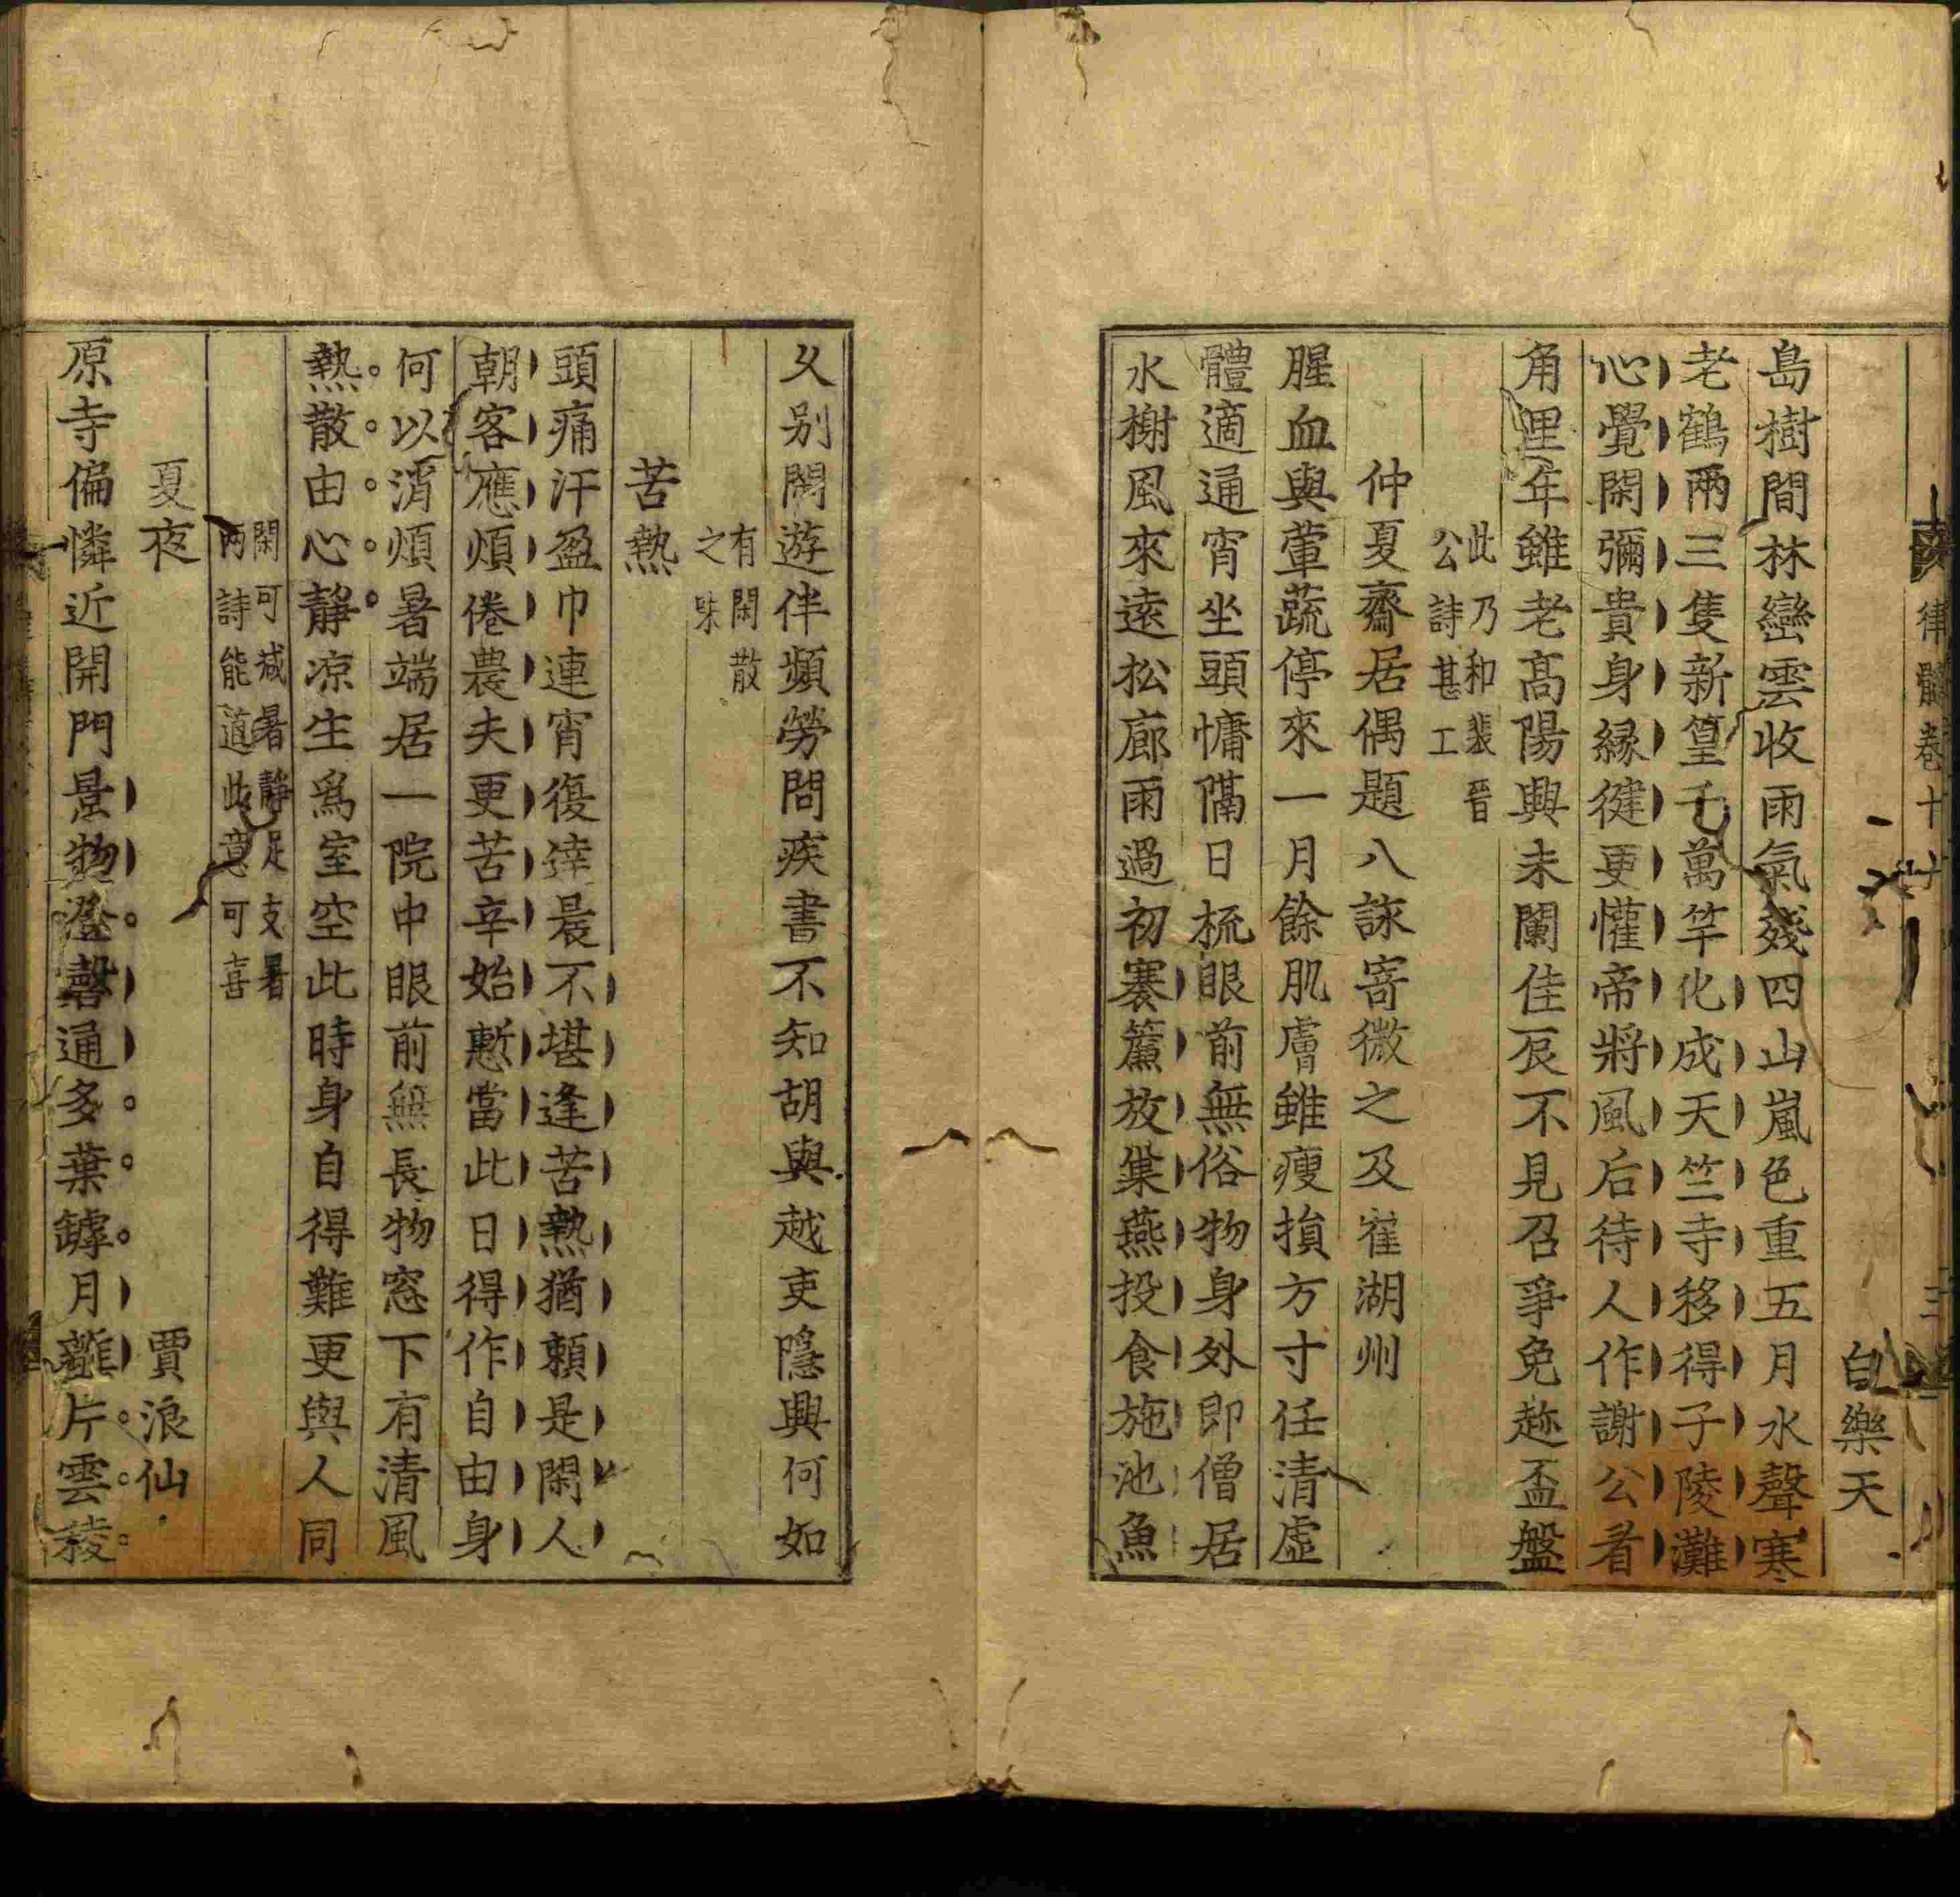 律髓卷十一
白樂天
島樹間林巒雲收雨氣殘四山嵐色重五月水聲寒
老鶴兩三隻新篁千萬竿化成天竺寺移得子陵灘
心覺閑彌貴身緣健更懽帝將風后待人作謝公看
角里年雖老高陽興未闌佳辰不見召爭免趂盃盤
此乃和裴晉
公詩甚工
仲夏齋居偶題八詠寄微之及崔湖州
腥血與葷蔬停來一月餘肌膚雖瘦損方寸任清虛
體適通宵坐頭慵隔日梳眼前無俗物身外即僧居
水榭風來遠松廊雨過初褰簾放巢燕投食施池魚
久別閑遊伴頻勞問疾書不知胡與越吏隱興何如
有閑散
之味
苦熱
頭痛汗盈巾連宵復達晨不堪逢苦熱猶賴是閑人
朝客應煩倦農夫更苦辛始慙當此日得作自由身
何以消煩暑端居一院中眼前無長物窓下有清風
熱散由心靜凉生爲室空此時身自得難更與人同
閑可減暑靜足支暑
兩詩能道此意可喜
夏夜
賈浪仙
原寺偏憐近開門景物澄磬通多葉罅月離片雲稜